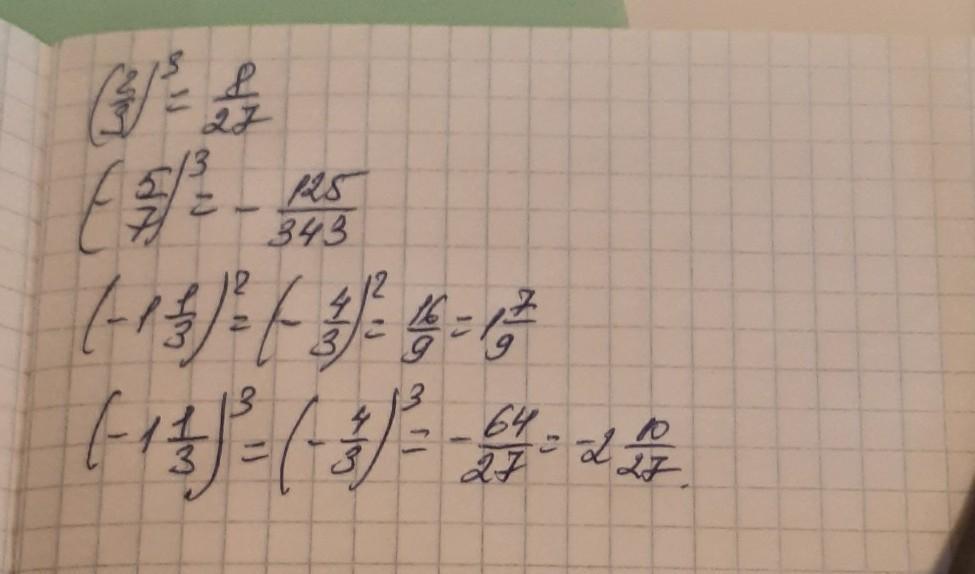 (2/3)³ = 8/27
(- 5/7)³ = - 125/343
(- 1 1/3)² = (- 4/3)² = 16/9 = 1 7/9
(- 1 1/3)³ = (- 4/3)³ = - 64/27 = -2 10/27.